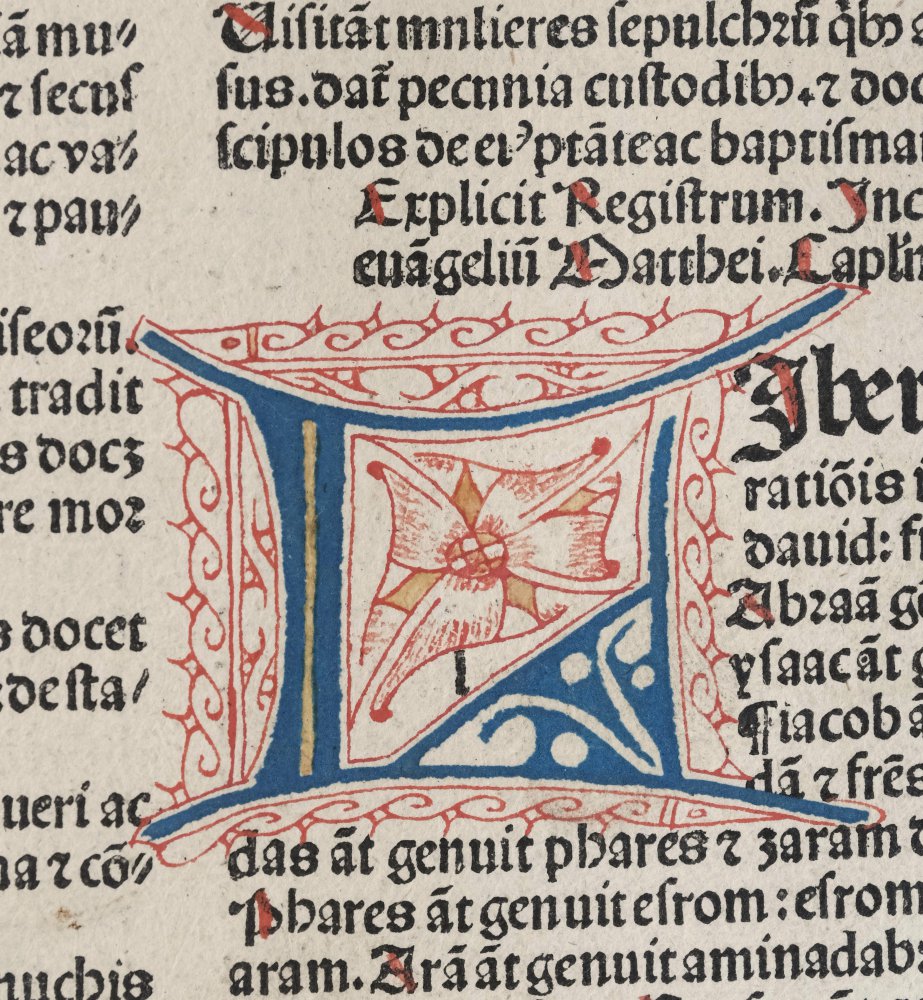 ā mu⸗
⁊ ſecuſ
ac va⸗
⁊ pau⸗
iſeorū.
tradit
s docꝫ
re moꝛ
s docet
de ſta⸗
ueri ac
na ⁊ cō⸗
nuchis
Uiſitāt mulieres ſepulchꝛū
ſus. dat̄ pecunia cuſtodibꝫ. ⁊ doc
ſcipulos de ei⁹ ptāte ac baptiſma
Explicit Regiſtrum. Inc
euāgeliū Matthei. Caplm
l
Iber
ratiōis
dauid: f
Abꝛaā g
yſaac āt g
¶ iacob a
dā ⁊ frēs
das āt genuit phares ⁊ zaram
Phares āt genuit eſrom: eſrom
aram. Arā āt genuit aminadab